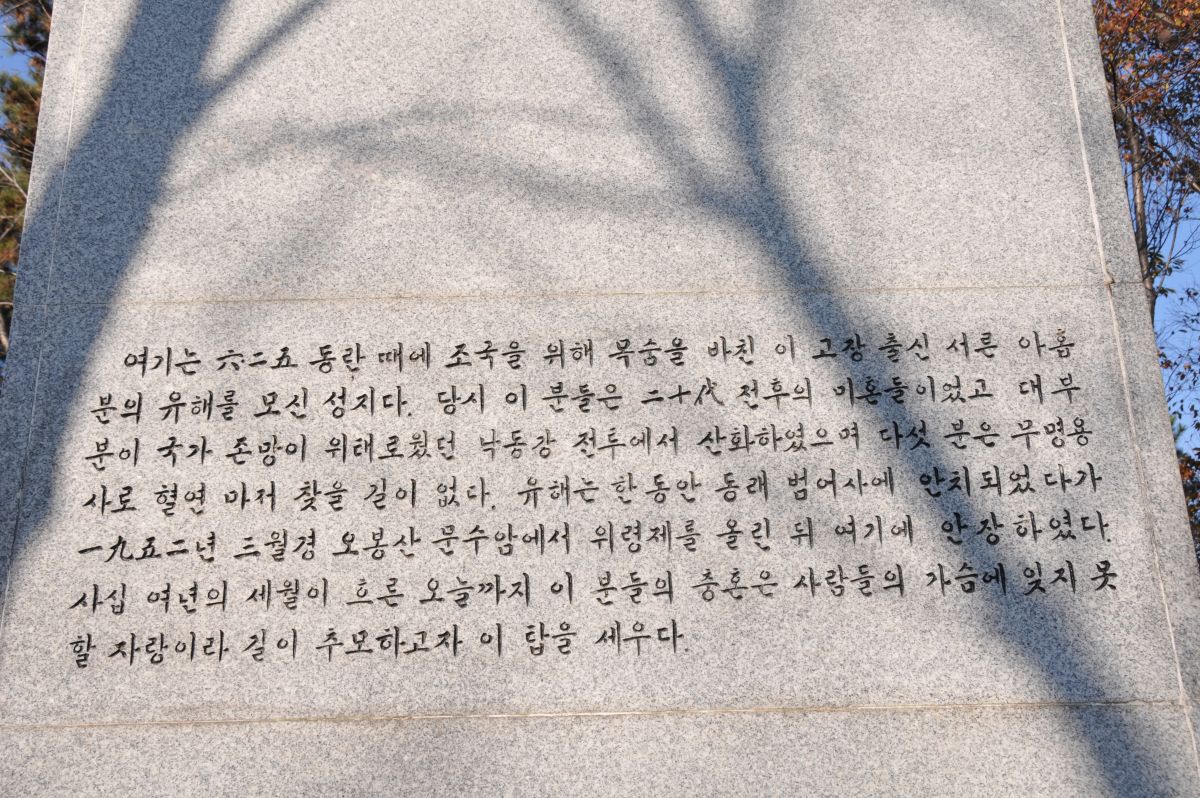 여기는 六二五 동란 때에 조국을 위해 목숨을 바친 이 고장 출신 서른 아홉
분의 유해를 모신 성지다. 당시 이 분들은 二十代 전후의 미혼들이었고 대부
분이 국가 존망이 위태로웠던 낙동강 전투에서 산화하였으며 다섯 분은 무명용
사로 혈연 마저 찾을 길이 없다. 유해는 한동안 동래 범어사에 안치되었다가
一九五二년 三월경 오봉산 문수암에서 위령제를 올린 뒤 여기에 안장하였다.
사십 여년의 세월이 흐른 오늘까지 이 분들의 충혼은 사람들의 가슴에 잊지 못
할 자랑이라 길이 추모하고자 이 탑을 세우다.